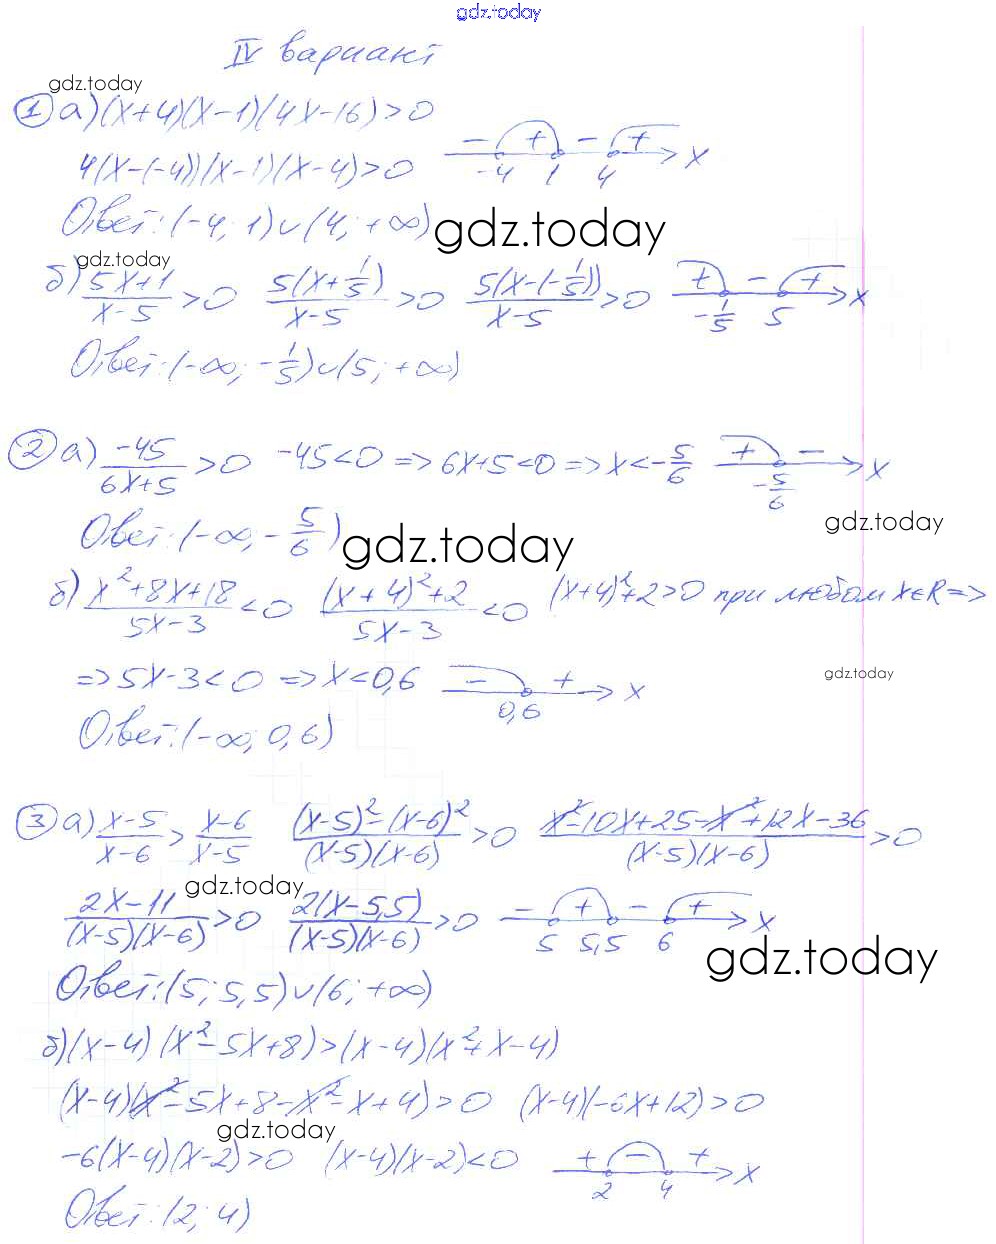 gdz.today
IV вариант
gdz.today
1 а) (x+4)(x-1)(4x-16)>0
4(x-(-4))(x-1)(x-4)>0 - + - + -4 1 4 x
Ответ: (-4; 1)∪(4; +∞) gdz.today
gdz.today
б) (5x+1)/(x-5)>0 5(x+1/5)/(x-5)>0 5(x-(-1/5))/(x-5)>0 + - + -1/5 5 x
Ответ: (-∞; -1/5)∪(5; +∞)
2 а) -45/(6x+5)>0 -45<0 => 6x+5<0 => x<-5/6 + - -5/6 x
gdz.today
Ответ: (-∞; -5/6) gdz.today
б) (x²+8x+18)/(5x-3)<0 ((x+4)²+2)/(5x-3)<0 (x+4)²+2>0 при любом x∈R =>
=> 5x-3<0 => x<0,6 - + 0,6 x gdz.today
Ответ: (-∞; 0,6)
3 а) (x-5)/(x-6)>(x-6)/(x-5) ((x-5)²-(x-6)²)/((x-5)(x-6))>0 (x²-10x+25-x²+12x-36)/((x-5)(x-6))>0
gdz.today
(2x-11)/((x-5)(x-6))>0 2(x-5,5)/((x-5)(x-6))>0 - + - + 5 5,5 6 x
gdz.today
Ответ: (5; 5,5)∪(6; +∞)
б) (x-4)(x²-5x+8)>(x-4)(x²+x-4)
(x-4)(x²-5x+8-x²-x+4)>0 (x-4)(-6x+12)>0
gdz.today
-6(x-4)(x-2)>0 (x-4)(x-2)<0 + - + 2 4 x
Ответ: (2; 4)